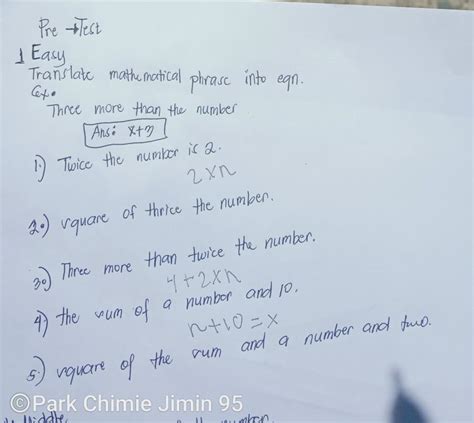 Pre → Test
1 Easy
Translate mathematical phrase into eqn.
Ex.
Three more than the number
Ans: x+3
1.) Twice the number is 2.
2xn
2.) square of thrice the number.
3.) Three more than twice the number.
4+2xn
4.) the sum of a number and 10.
n+10=x
5.) square of the sum and a number and two.
©Park Chimie Jimin 95
Middle
number.